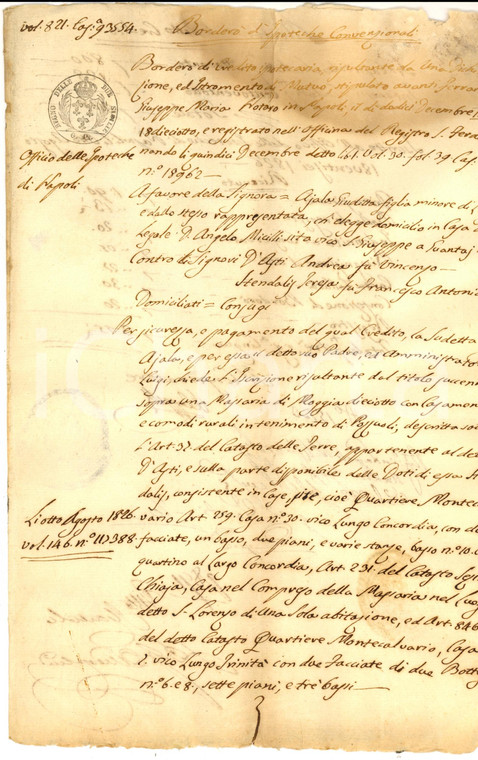 vol. 821. Cas.ª 93554.
Borderò d'Ipoteche Convenzionali
Borderò di credito, ipotecaria, risultante da una Dichia
zione, ed Istromento di Mutuo, stipolato avanti Ferra
Giuseppe Maria in Napoli, il dì dodici Decembre
18dieciotto, e registrato nell'Officina del Registro S. Ferdi
nando li quindici Decembre detto lib.1. Vol. 30. fol. 39. Cas
n.º 18962 —
Officio delle Ipoteche
di Napoli
A favore della Signora = Ajala Giuditta figlia minore di
e dallo stesso rappresentata, che elegge domicilio in Casa
Legale D. Angelo Micilli sita vico S. Giuseppe a
Contro di Signori D'Asti Andrea fù Vincenzo —
Stendalij Teresa fù Francesco Antonio
Domiciliati = Conjugi
Per sicurezza, e pagamento del qual Credito, la Sudetta
Ajala, e per essa il detto suo Padre, ed Amministrator
Luigi, chiede l'Iscrizione risultante dal titolo succen
sopra una Massaria di Moggia dieciotto con Casamen
e comodi rurali in tenimento di Pozzuoli, descritta so
L'Art. 37. del Catasto delle Terre, appartenente al de
D'Asti, e sulla parte disponibile delle Doti di essa
dalij, consistente in Case, site, cioè Quartiere Monte
Li otto Agosto 1826.
vol. 146. n.º 117388.
vario Art. 259. Casa n.º 30. vico Lungo Concordia, con d
facciate, un basso, due piani, e varie stanze, basso n.º 10.
quartino al Largo Concordia, Art. 231. del Catasto Sez
Chiaja, Casa nel Compreso della Massaria nel Luo
detto S. Lorenzo di una Sola abitazione, ed Art. 846
del detto Catasto Quartiere Montecalvario, Casa
vico Lungo Trinità con due Facciate di due Bott
n.º 6. e 8., sette piani, e trè bassi —